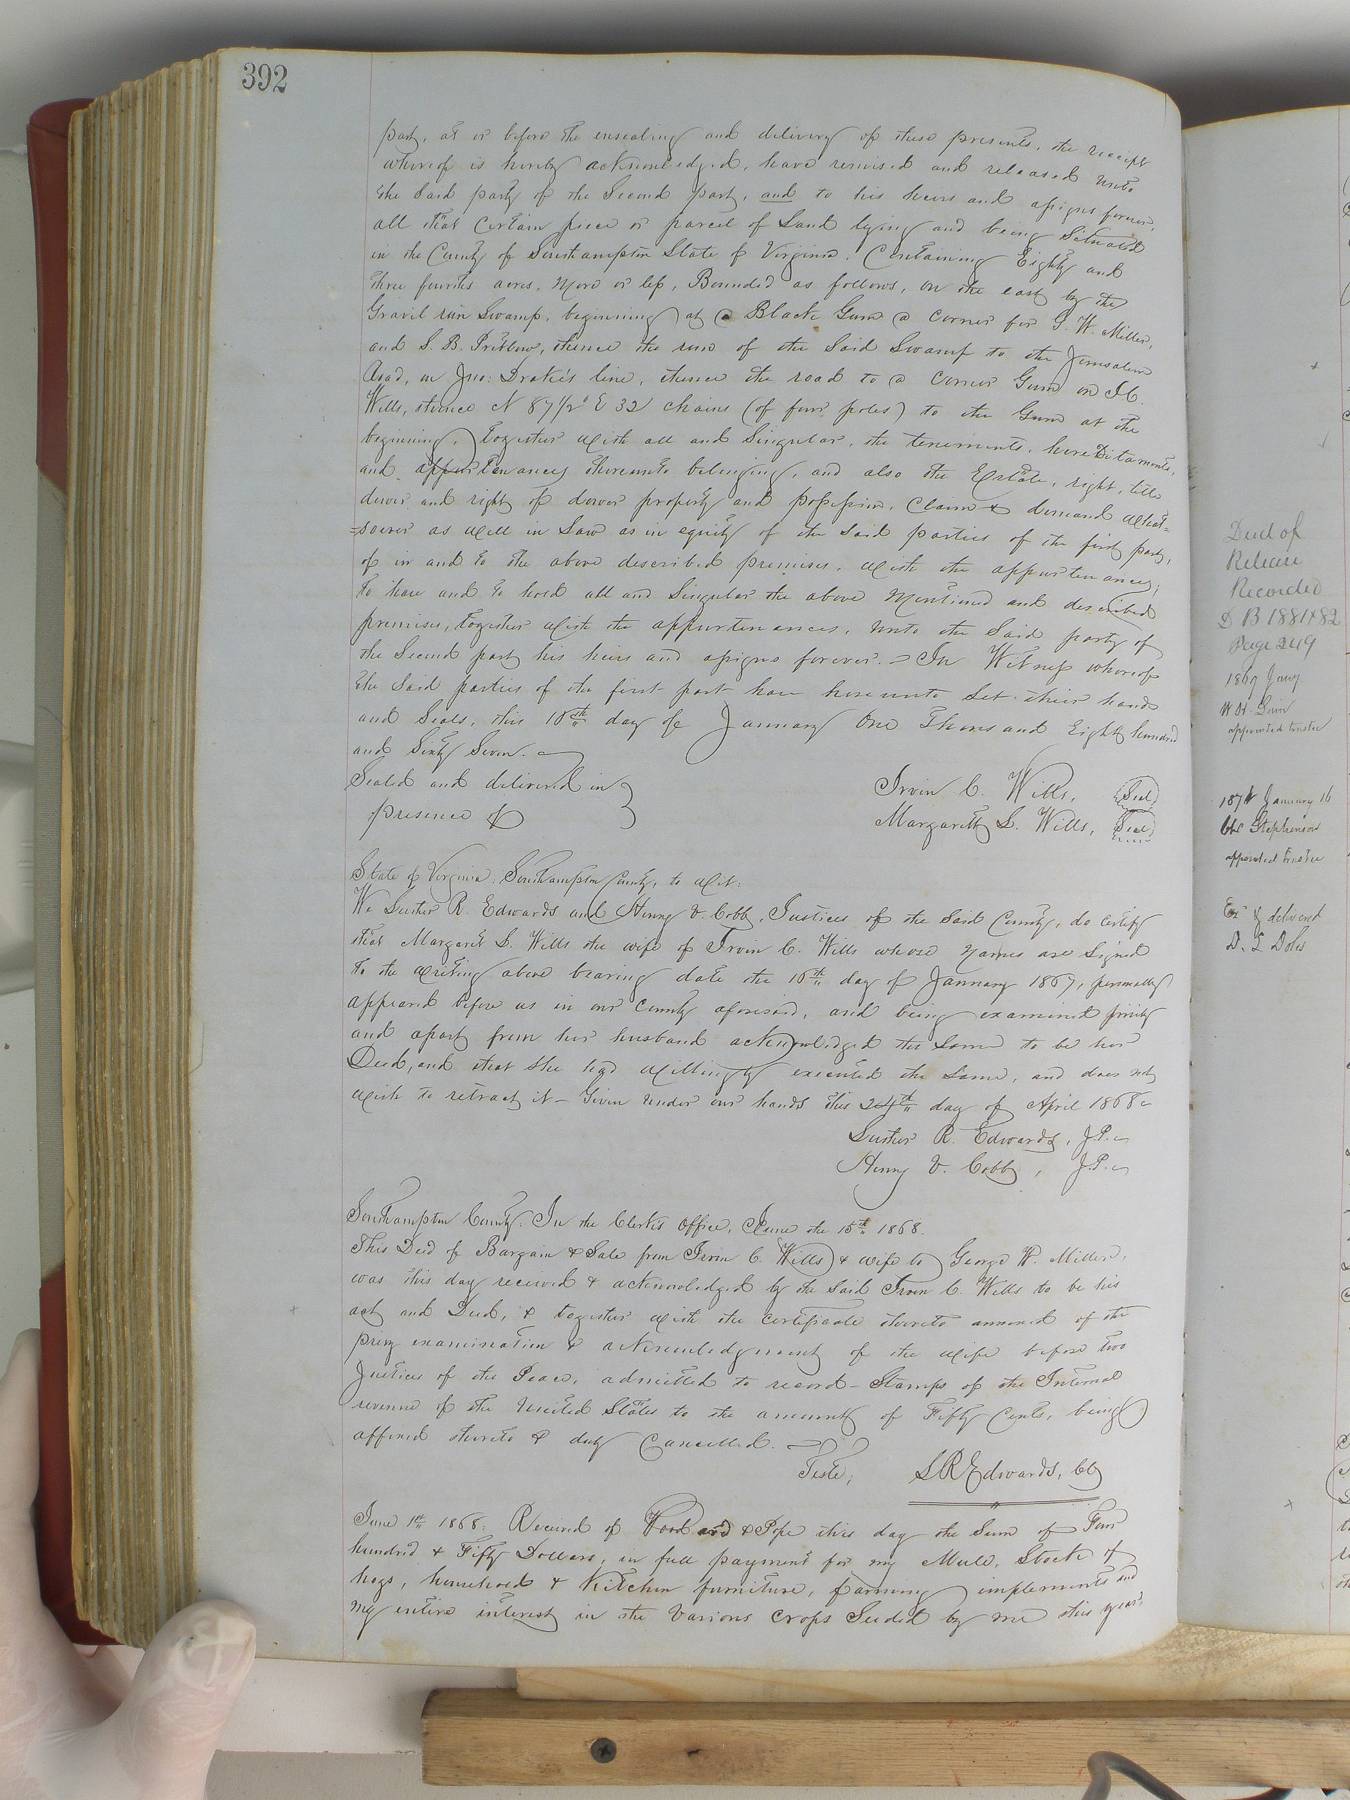 392
part, at or before the ensealing and delivery of these presents, the receipt
whereof is hereby acknowledged, have remised and released unto
the Said party of the Second part, and to his heirs and assigns forever,
all that Certain piece or parcel of Land lying and being Situated
in the County of Southampton State of Virginia. Containing Eighty and
three fourths acres, more or less, Bounded as follows, on the east by the
Gravil run Swamp, beginning at a Black Gum a corner for G. W. Miller,
and S. B. Pretlow, thence the run of the Said Swamp to the Jerusalem
Road, on Jno: Drake's line, thence the road to a corner Gum on I. C.
Wills, thence N 87 1/2° E 32 chains (of four poles) to the Gum at the
beginning. Together with all and Singular, the tenements, hereditaments,
and appurtenances thereunto belonging, and also the Estate, right, title
dower and right of dower property and possession, Claim & demand what=
=soever as well in Law as in equity of the said parties of the first part,
of in and to the above described premises, with the appurtenances;
To have and to hold all and Singular the above Mentioned and described
premises, together with the appurtenances, unto the Said party of
the Second part his heirs and assigns forever. – In Witness whereof
the Said parties of the first part have hereunto Set their hands
and Seals, this 10th day of January One Thousand Eight hundred
and Sixty Seven.
Sealed and delivered in
presence of
Irvin C. Wills, Seal
Margarett S. Wills, Seal
State of Virginia: Southampton County, to wit:
We Luther R. Edwards and Henry V. Cobb, Justices of the Said County, do certify
that Margaret S. Wills the wife of Irvin C. Wills whose names are Signed
to the writing above bearing date the 10th day of January 1867, personally
appeared before us in our County aforesaid, and being examined privily
and apart from her husband acknowledged the Same to be her
Deed, and that She had Willingly executed the Same, and does not
wish to retract it – Given under our hands this 24th day of April 1868
Luther R. Edwards, J.P.
Henry V. Cobb, J.P.
Southampton County: In the Clerk's Office, June the 15th 1868.
This Deed of Bargain & Sale from Irvin C. Wills & wife to George W. Miller,
was this day received & acknowledged by the Said Irvin C. Wills to be his
act and Deed, & together with the certificate thereto annexed of the
privy examination & acknowledgment of the wife before two
Justices of the Peace, admitted to record – Stamps of the Internal
revenue of the United States to the amount of Fifty Cents, being
affixed thereto & duly Cancelled.
Teste, L R Edwards, CC
June 1st 1868. Received of & Pope this day the Sum of Four
hundred & Fifty Dollars, in full payment for my Mule, Stock of
hogs, household & Kitchen furniture, farming implements and
my entire interest in the various crops Seeded by me this year.
Deed of
Release
Recorded
D B 1881 & 82
Page 249
1869 Jany
appointed trustee
1874 January 16
Stephenson
appointed trustee
Exd & delivered